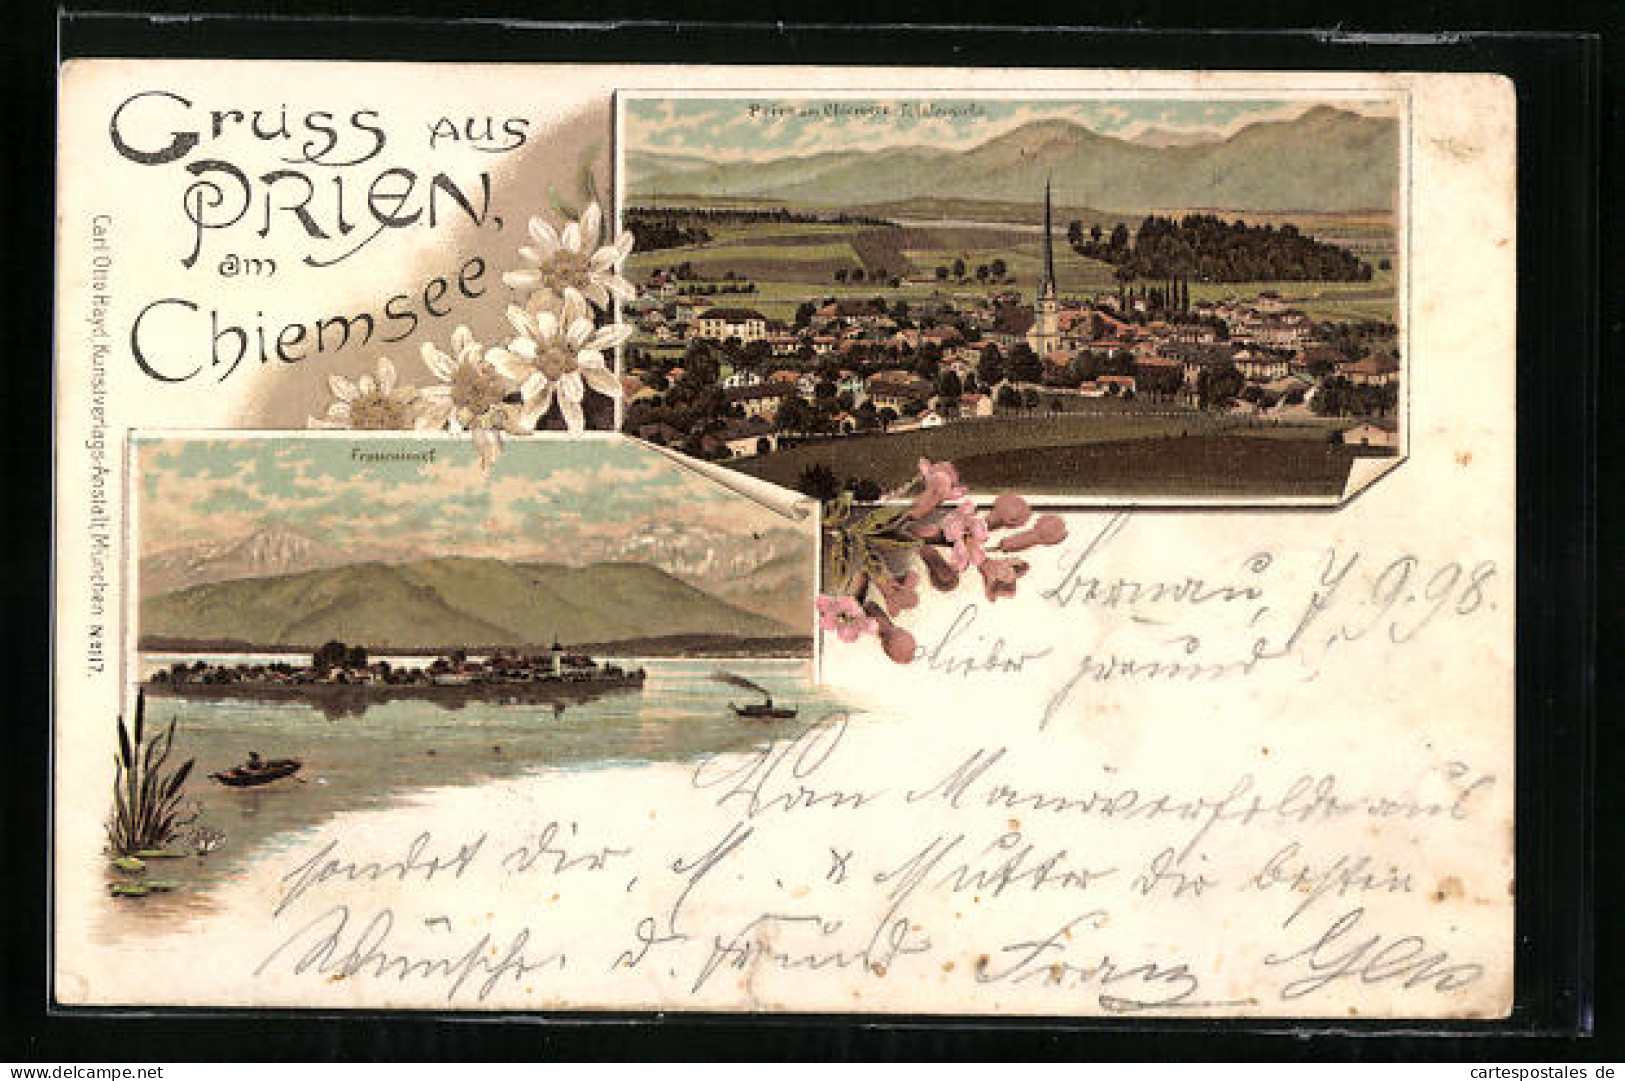 Gruss aus
Prien,
am
Chiemsee
Prien am Chiemsee Totalansicht
Fraueninsel
Carl Otto Hayd Kunstverlags-Anstalt, München No 117.
Bernau, 7.9.98.
Lieber Freund!
Von Manöverfelde aus
sendet Dir, M. . & Mutter die besten
Wünsche. d. Freund Franz
cartespostales de